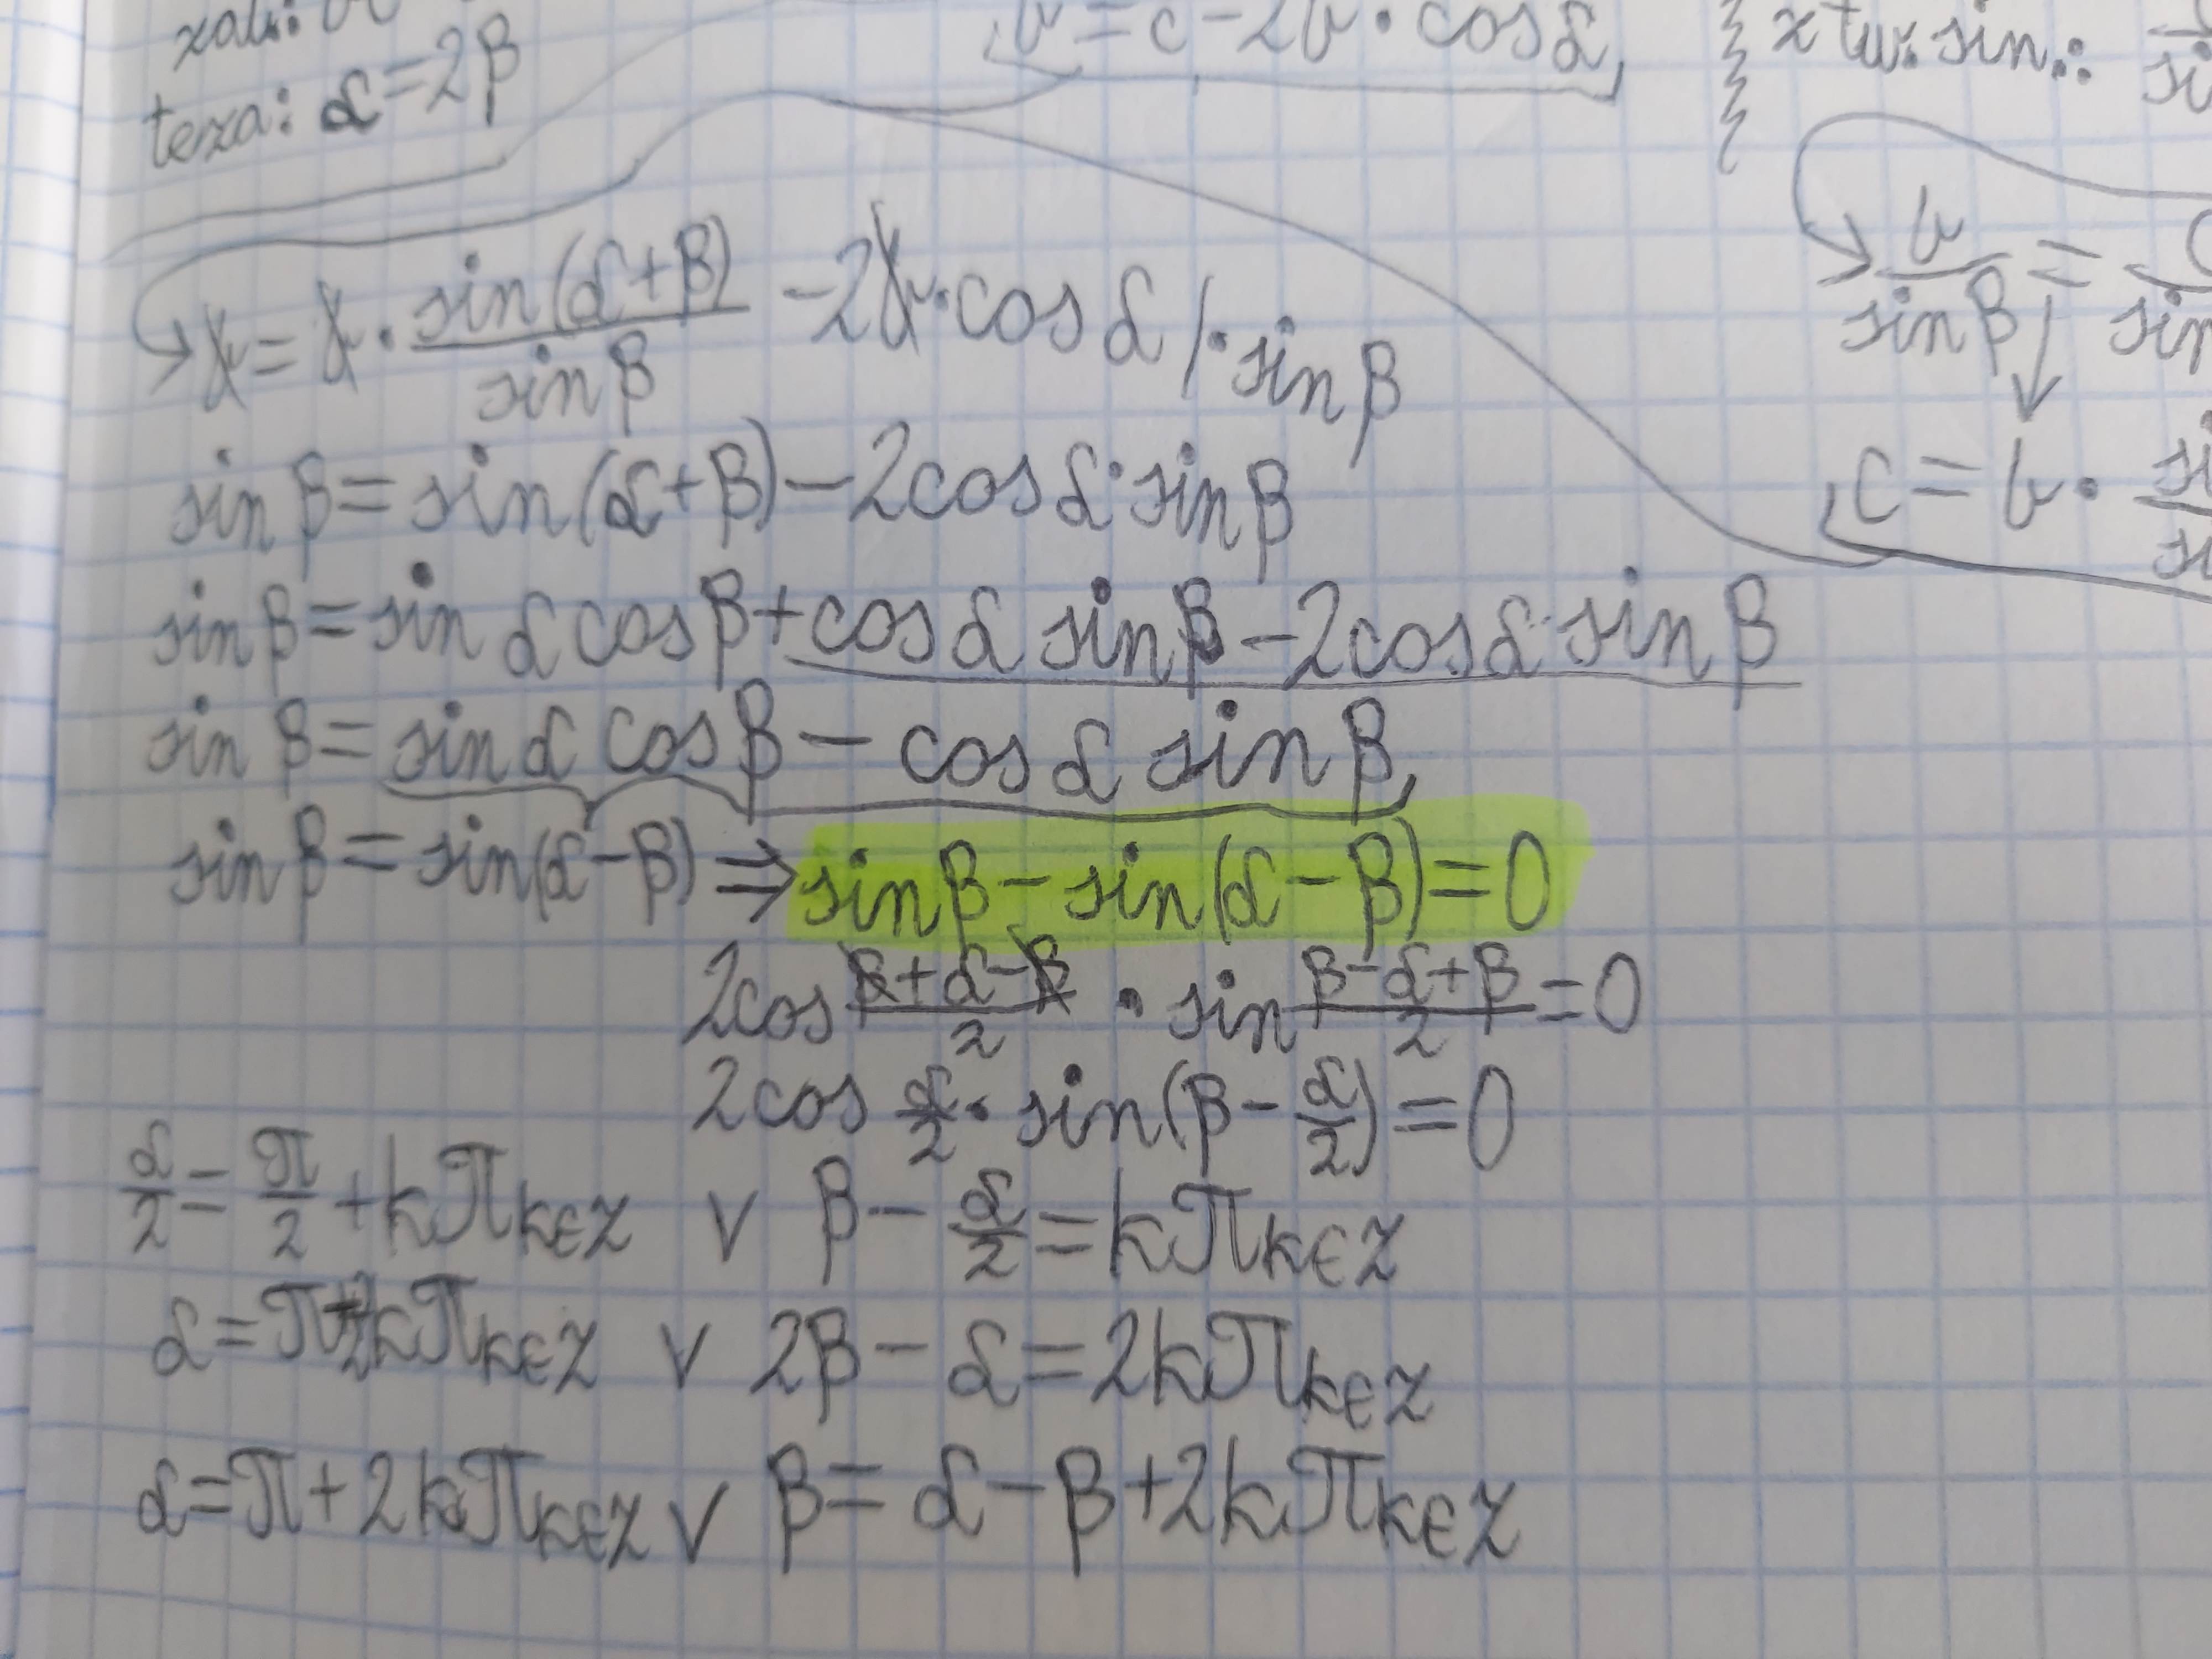 teza: α=2β
b=c-2b·cosα
z tw. sin.:
b/sinβ =
c=b·
b=b·sin(α+β)/sinβ -2b·cosα /·sinβ
sinβ=sin(α+β)-2cosα·sinβ
sinβ=sinαcosβ+cosαsinβ-2cosα·sinβ
sinβ=sinαcosβ-cosαsinβ
sinβ=sin(α-β)⇒sinβ-sin(α-β)=0
2cos (β+α-β)/2 · sin (β-α+β)/2=0
2cos α/2 · sin(β-α/2)=0
α/2=π/2+kπ k∈Z ∨ β-α/2=kπ k∈Z
α=π+2kπ k∈Z ∨ 2β-α=2kπ k∈Z
α=π+2kπ k∈Z ∨ β=α-β+2kπ k∈Z